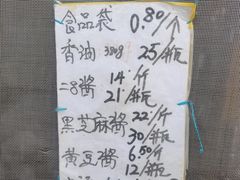 食品袋 0.80/个
香油 380g 25/瓶
二8酱 14/斤
21/瓶
黑芝麻酱 22/斤
30/瓶
黄豆酱 6.50/斤
12/瓶